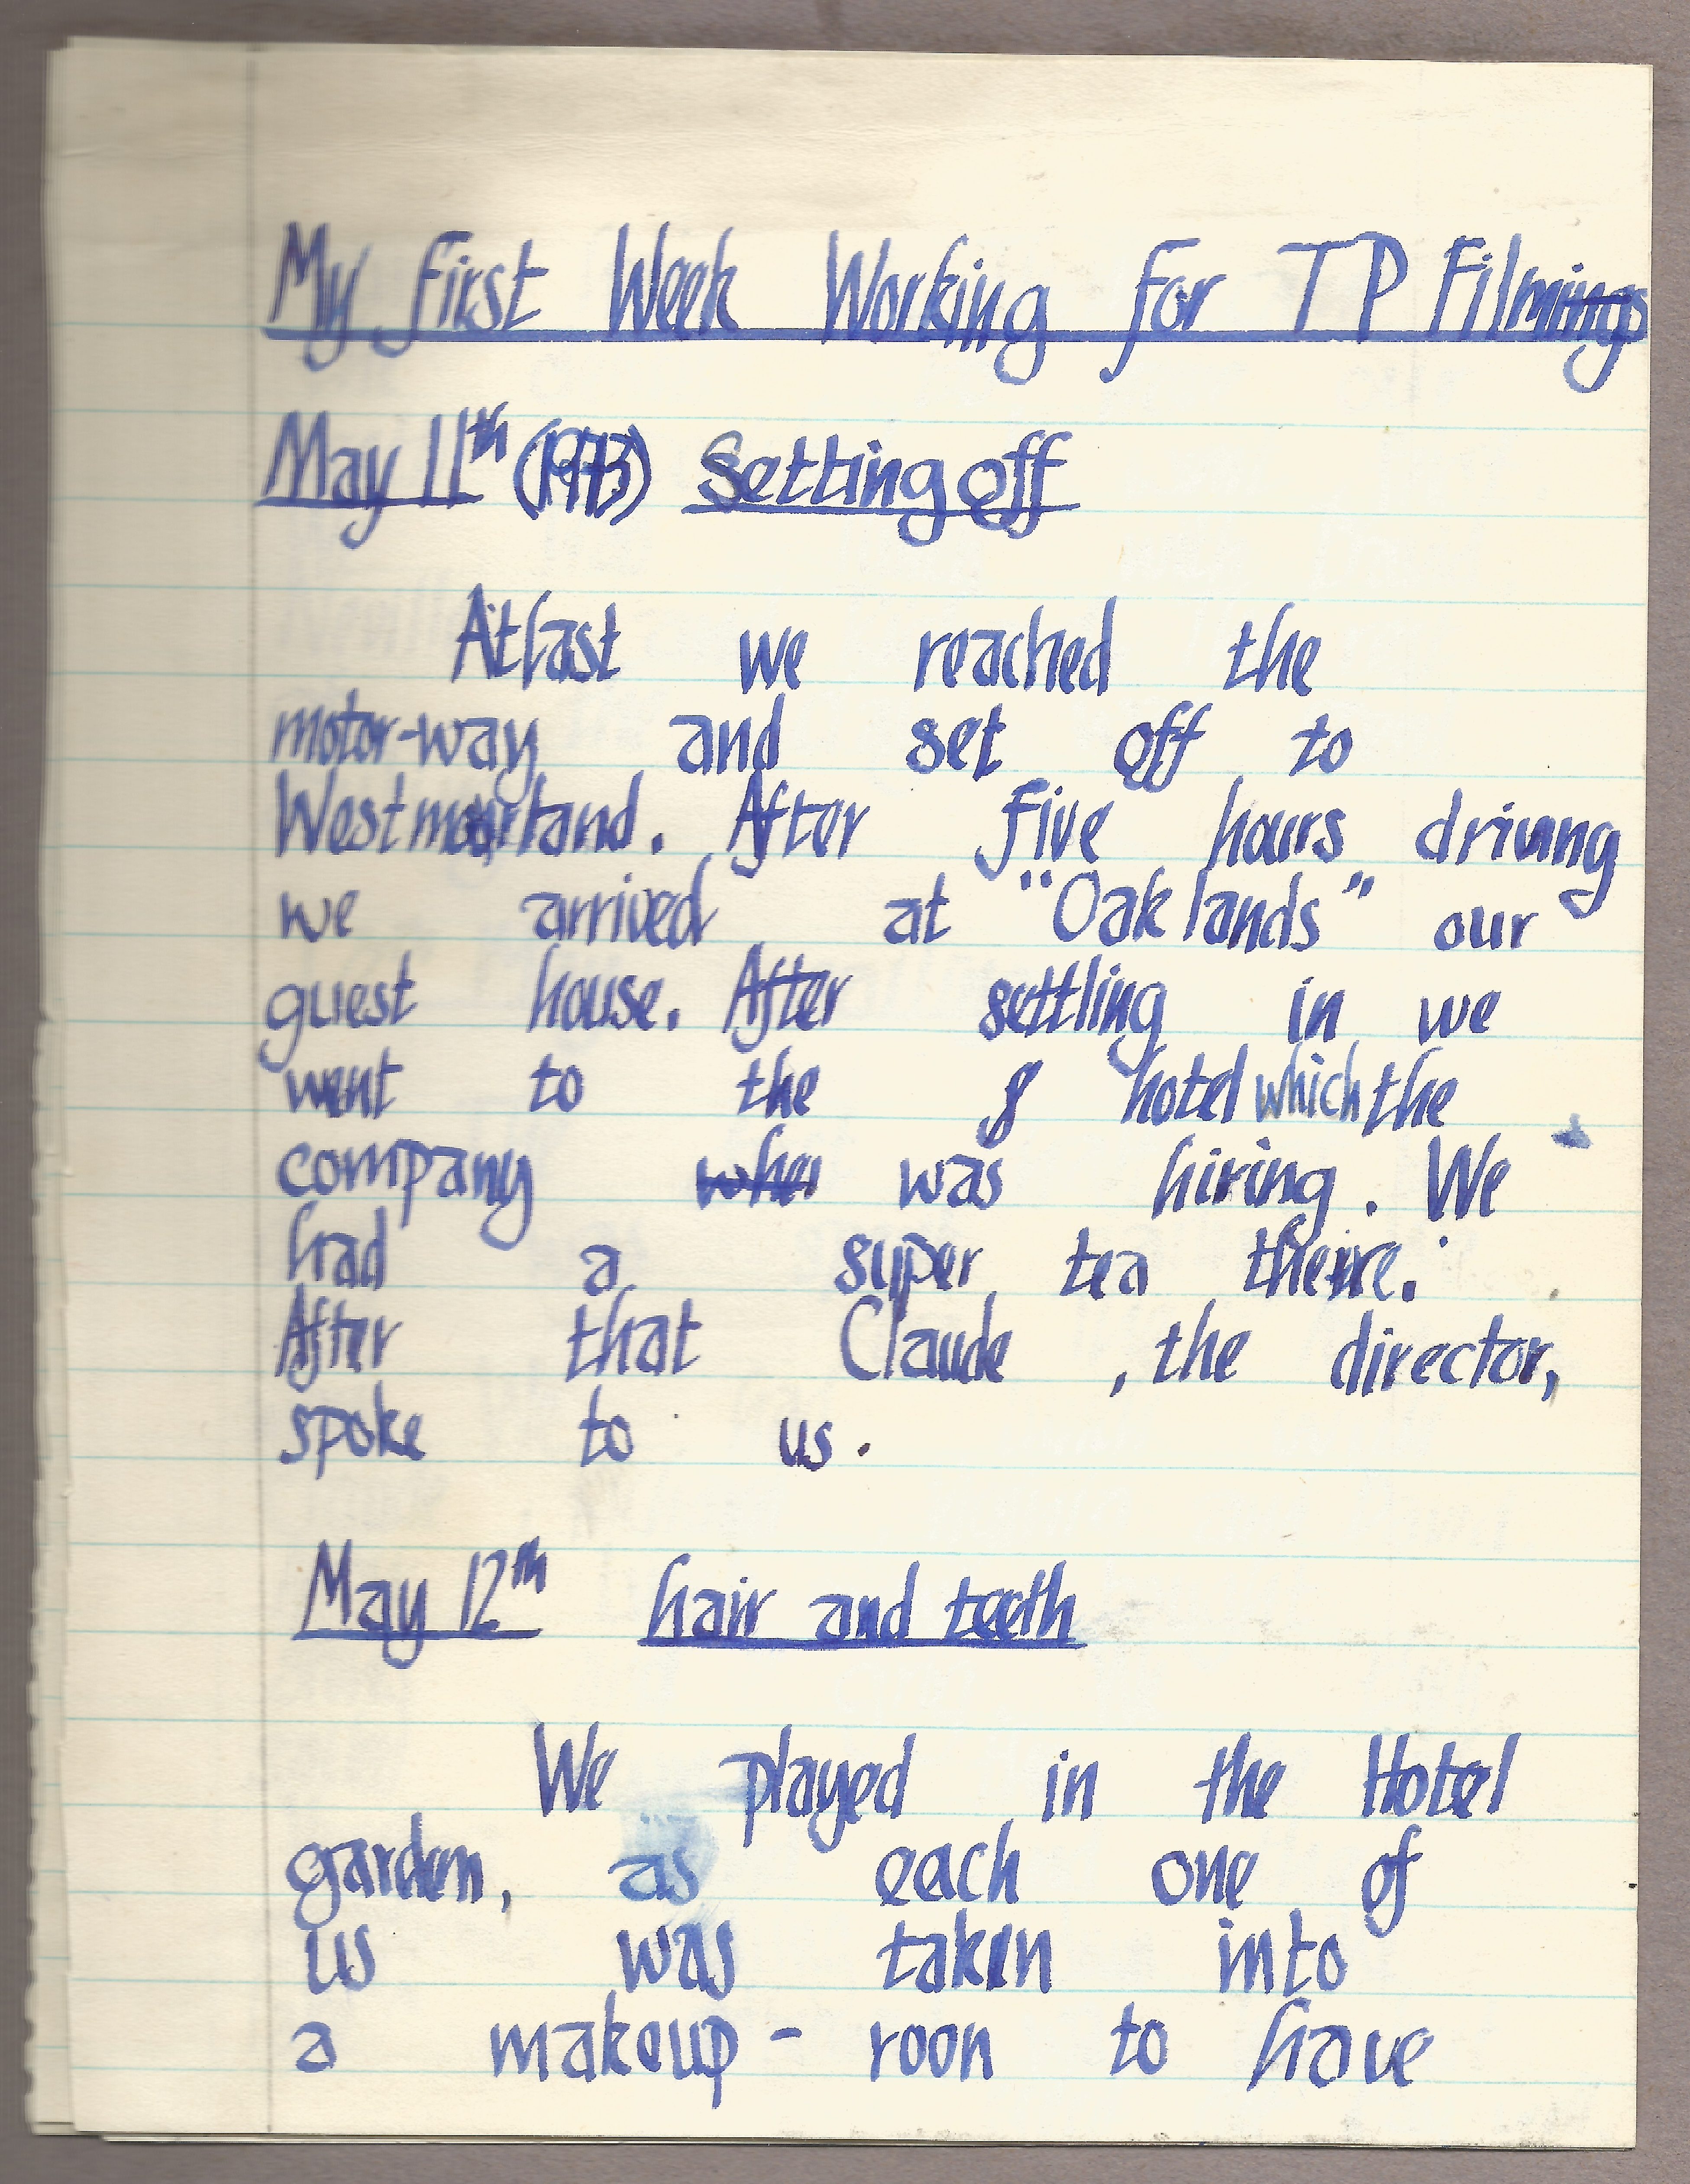 My first Week Working for T P Filmings
May 11th (1973) Setting off
At last we reached the
motor-way and set off to
Westmorland. After five hours driving
we arrived at "Oaklands" our
guest house. After settling in we
went to the g hotel which the
company whe was hiring. We
had a super tea there.
After that Claude, the director,
spoke to us.
May 12th hair and teeth
We played in the Hotel
garden, as each one of
us was taken into
a makeup - roon to have